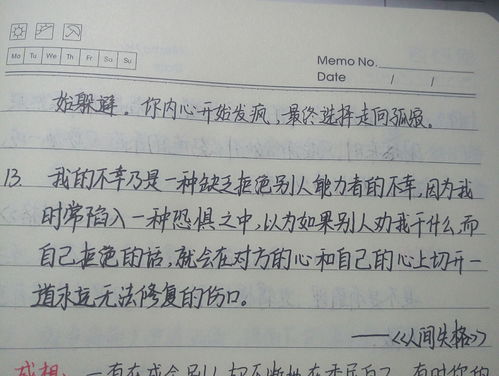 Mo Tu We Th Fr Sa Su
Memo No.
Date / /
始躲避。你内心开始发疯,最终选择走向孤寂。
13. 我的不幸乃是一种缺乏拒绝别人能力者的不幸,因为我
时常陷入一种恐惧之中,以为如果别人劝我干什么,而
自己拒绝的话,就会在对方的心和自己的心上切开一
道永远无法修复的伤口。
——《人间失格》
感想: